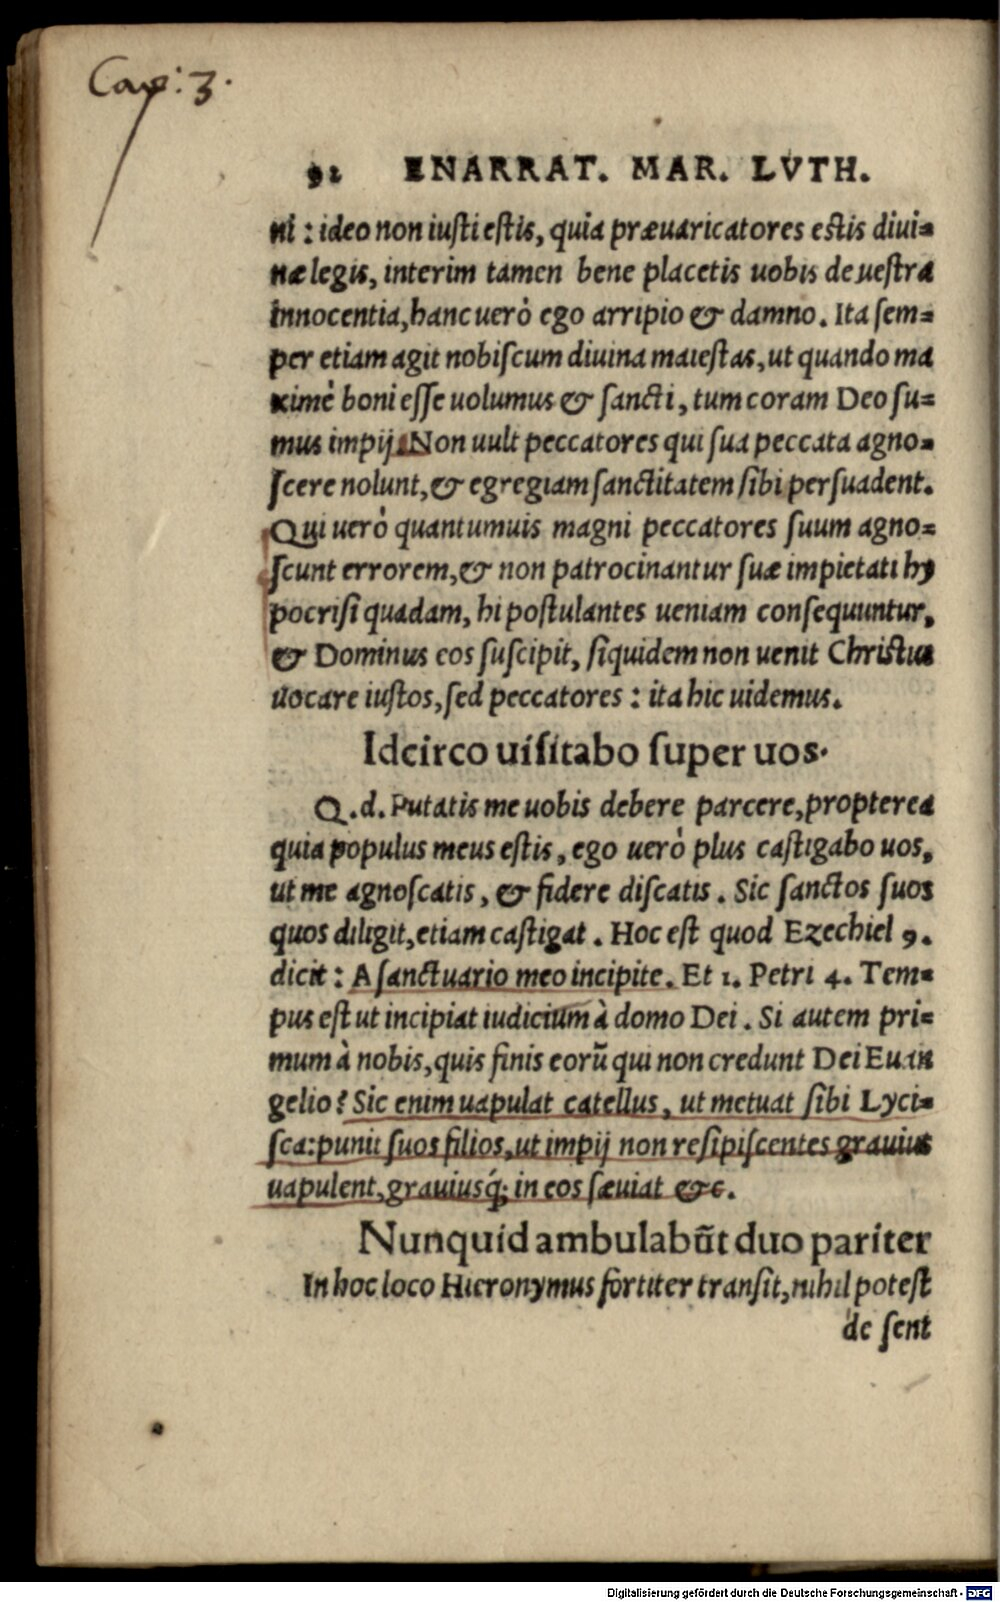 Cap: 3.
92 ENARRAT. MAR. LVTH.
ni : ideo non iusti estis, quia præuaricatores estis diui=
næ legis, interim tamen bene placetis uobis de uestra
innocentia, hanc uerò ego arripio & damno. Ita sem=
per etiam agit nobiscum diuina maiestas, ut quando ma
ximè boni esse uolumus & sancti, tum coram Deo su=
mus impij. Non uult peccatores qui sua peccata agno=
scere nolunt, & egregiam sanctitatem sibi persuadent.
Qui uerò quantumuis magni peccatores suum agno=
scunt errorem, & non patrocinantur suæ impietati hy
pocrisi quadam, hi postulantes ueniam consequuntur,
& Dominus eos suscipit, siquidem non uenit Christus
uocare iustos, sed peccatores : ita hic uidemus.
Idcirco uisitabo super uos.
Q.d. Putatis me uobis debere parcere, propterea
quia populus meus estis, ego uerò plus castigabo uos,
ut me agnoscatis, & fidere discatis. Sic sanctos suos
quos diligit, etiam castigat. Hoc est quod Ezechiel 9.
dicit : A sanctuario meo incipite. Et 1. Petri 4. Tem=
pus est ut incipiat iudicium à domo Dei. Si autem pri=
mum à nobis, quis finis eorũ qui non credunt Dei Euan
gelio? Sic enim uapulat catellus, ut metuat sibi Lyci=
sca: punit suos filios, ut impij non resipiscentes grauius
uapulent, grauiusq́; in eos sæuiat &c.
Nunquid ambulabũt duo pariter
In hoc loco Hieronymus fortiter transit, nihil potest
de sent
Digitalisierung gefördert durch die Deutsche Forschungsgemeinschaft - DFG